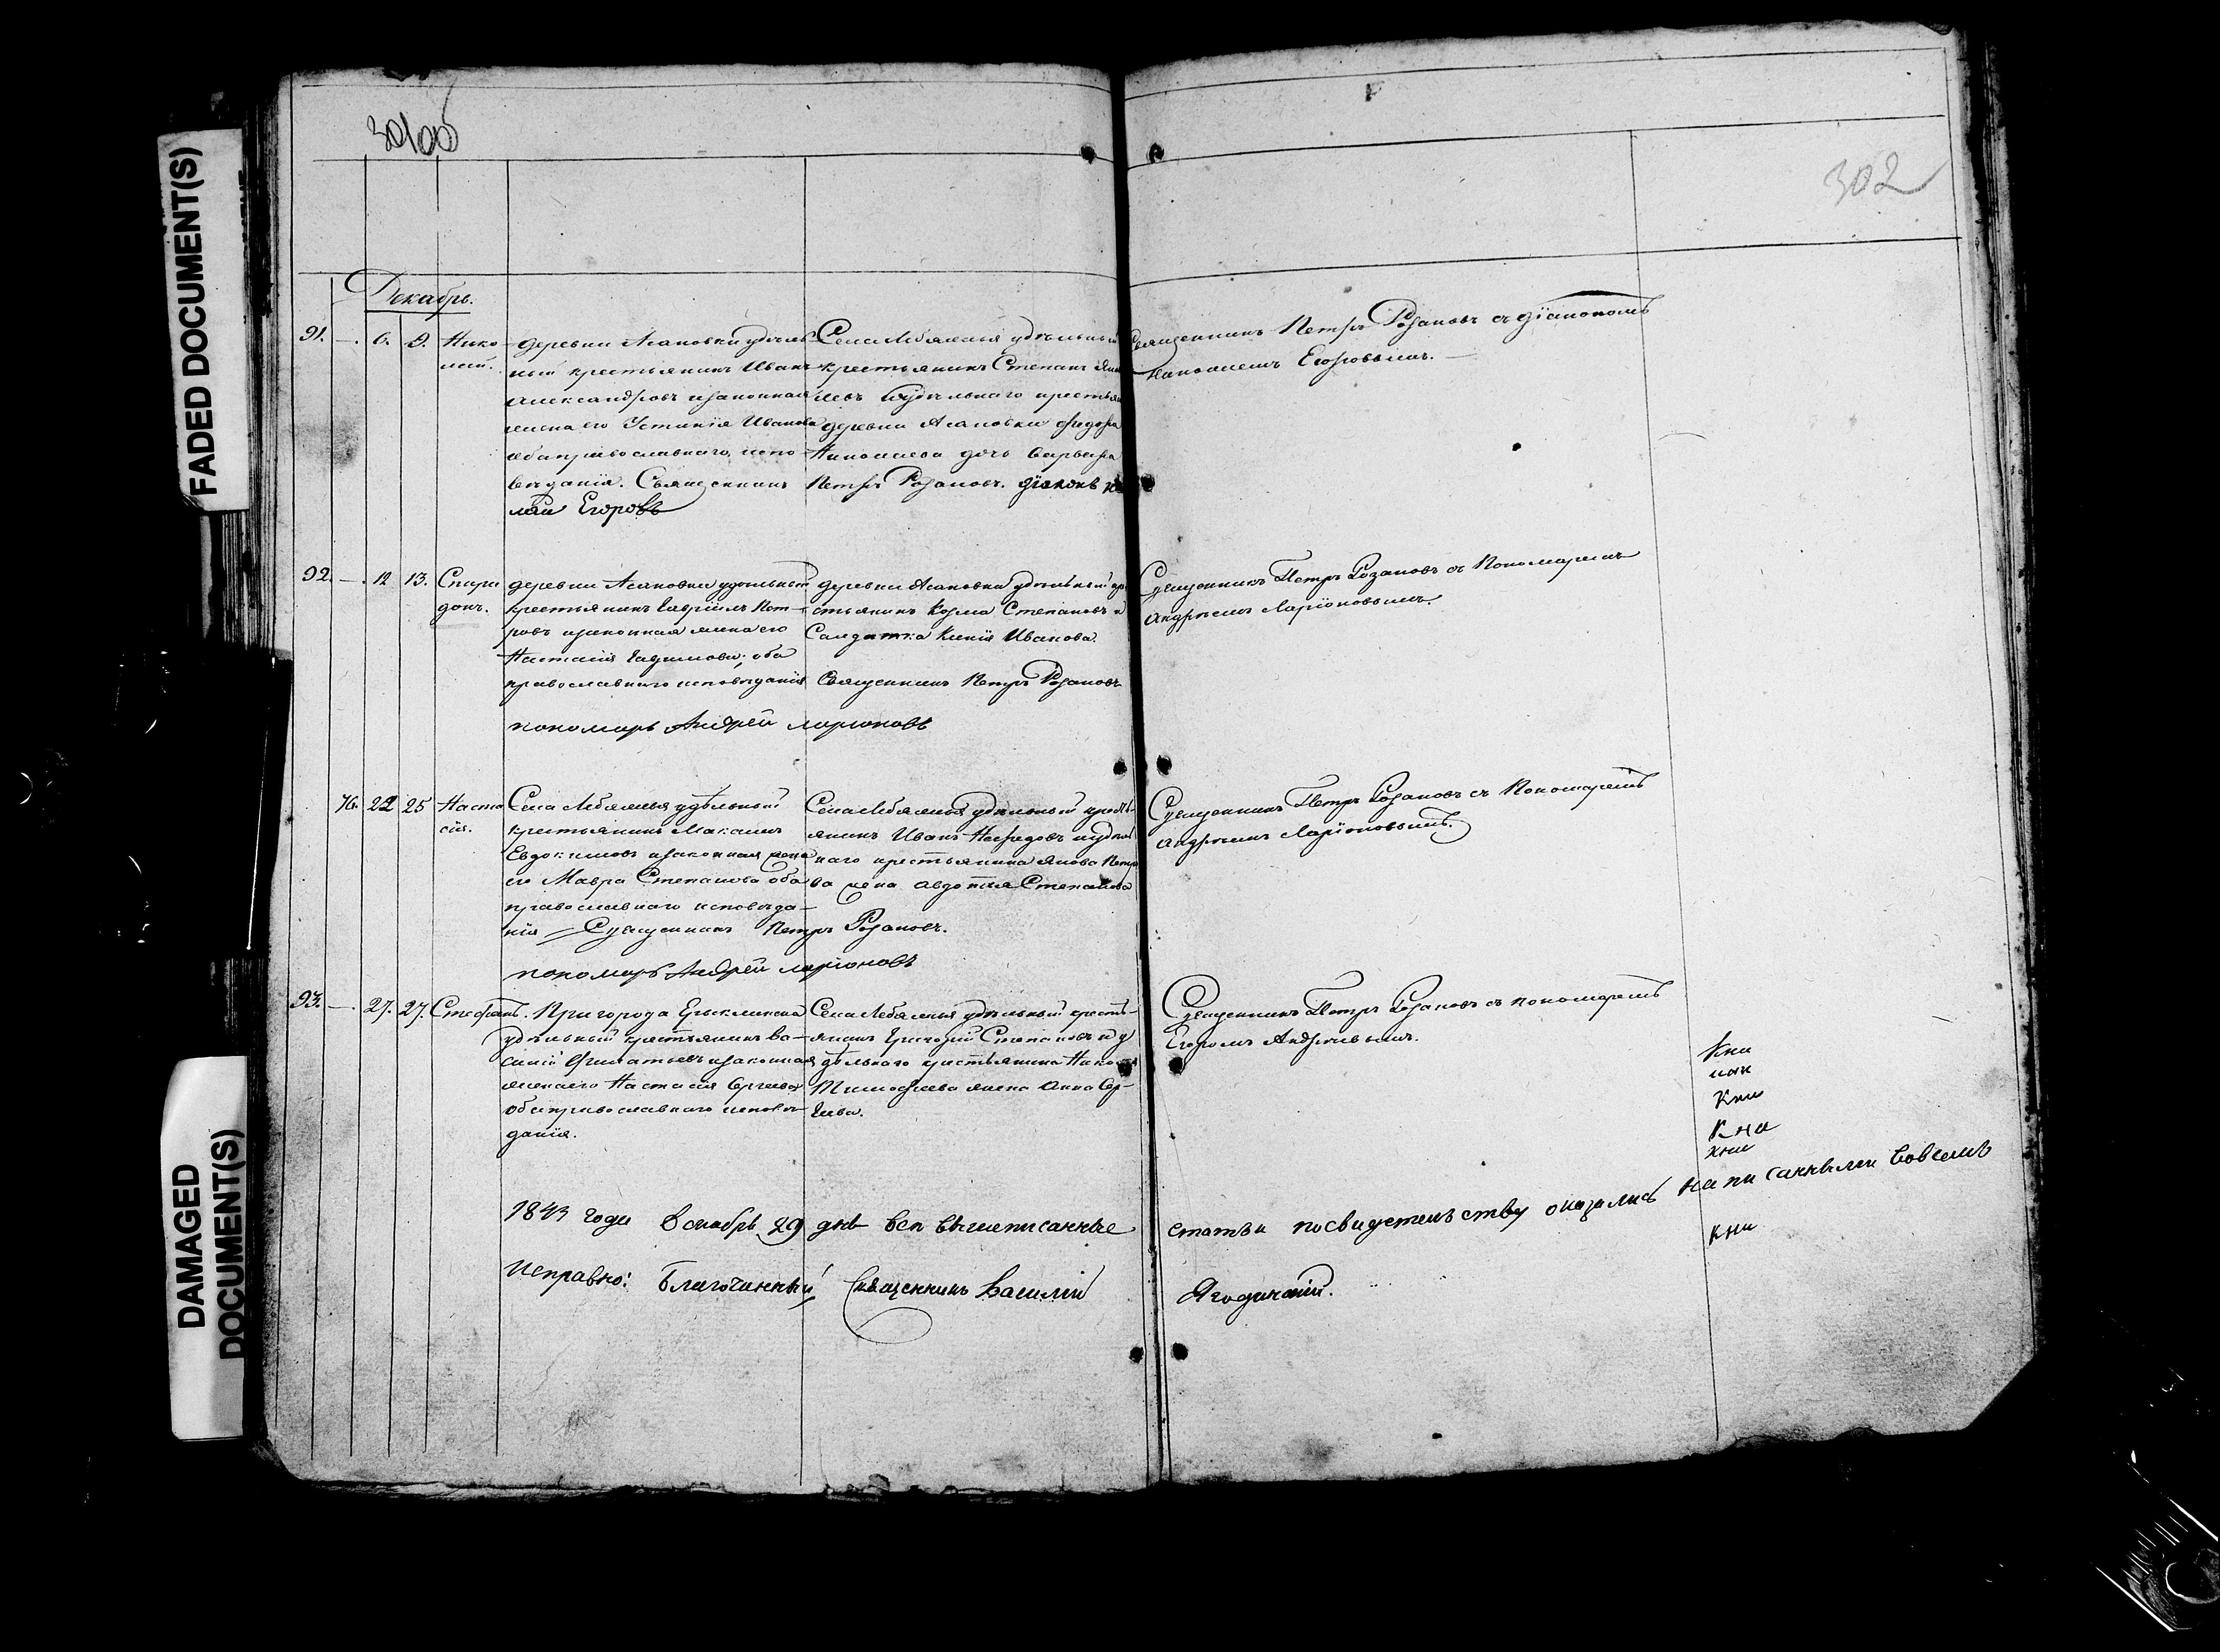 FADED DOCUMENT(S)
DAMAGED DOCUMENT(S)
302
Декабрь.
91. — 6. 9. Нико-
лай.
деревни Асановки удѣль-
ный крестьянинъ Иванъ
Александровъ изаконная
жена его Устинія Иванова
оба православнаго испо-
вѣданія. Священникъ Петръ Розановъ. Діаконъ
лай Егоровъ
Села Лебяжья удѣльный
крестьянинъ Степанъ
левъ иудѣльнаго крестьян
деревни Асановки Федора
Николаева дочь Варвара
Священникъ Петръ Розановъ съ діакономъ
Николаемъ Егоровымъ. —
92. — 12 13. Спири
донъ.
деревни Асановки удѣльный
крестьянинъ Гавріилъ Пет-
ровъ изаконная жена его
Настасія; оба
православнаго исповѣданія
деревни Асановки удѣльный кре
стьянинъ Козма Степановъ и
Салдатка Ксенія Иванова.
Священникъ Петръ Розановъ
пономарь Андрей Ларіоновъ
Священникъ Петръ Розановъ съ Пономаремъ
Андреемъ Ларіоновымъ.
76. 22 25 Наста
сія.
Села Лебяжья удѣльный
крестьянинъ Максимъ
Евдокимовъ изаконная жена
его Мавра Степанова оба
православнаго исповѣда-
нія — Священникъ Петръ Розановъ.
пономарь Андрей Ларіоновъ
Села Лебяжья удѣльный кресть-
янинъ Иванъ иудѣль
наго крестьянина Якова Петро
ва жена Авдотья Степанова
Священникъ Петръ Розановъ съ Пономаремъ
Андреемъ Ларіоновымъ.
93. — 27. 27. Стефанъ.
Пригорода Ерыклинска
удѣльный крестьянинъ Ва-
силій Филатьевъ изаконная
жена его Настасія Сергѣева
оба православнаго исповѣ-
данія.
Села Лебяжья удѣльный кресть-
янинъ Григорій Степановъ и у
дѣльнаго крестьянина Никол
Тимофѣева жена Анна Сер-
гѣева.
Священникъ Петръ Розановъ съ пономаремъ
Егоромъ Андреевымъ.
1843 года декабрь 29 дня все вышеписанные статьи посвидетельству оказались написанными вовсемъ
Исправно: Благочинный, Священникъ Василій Ягодинскій.